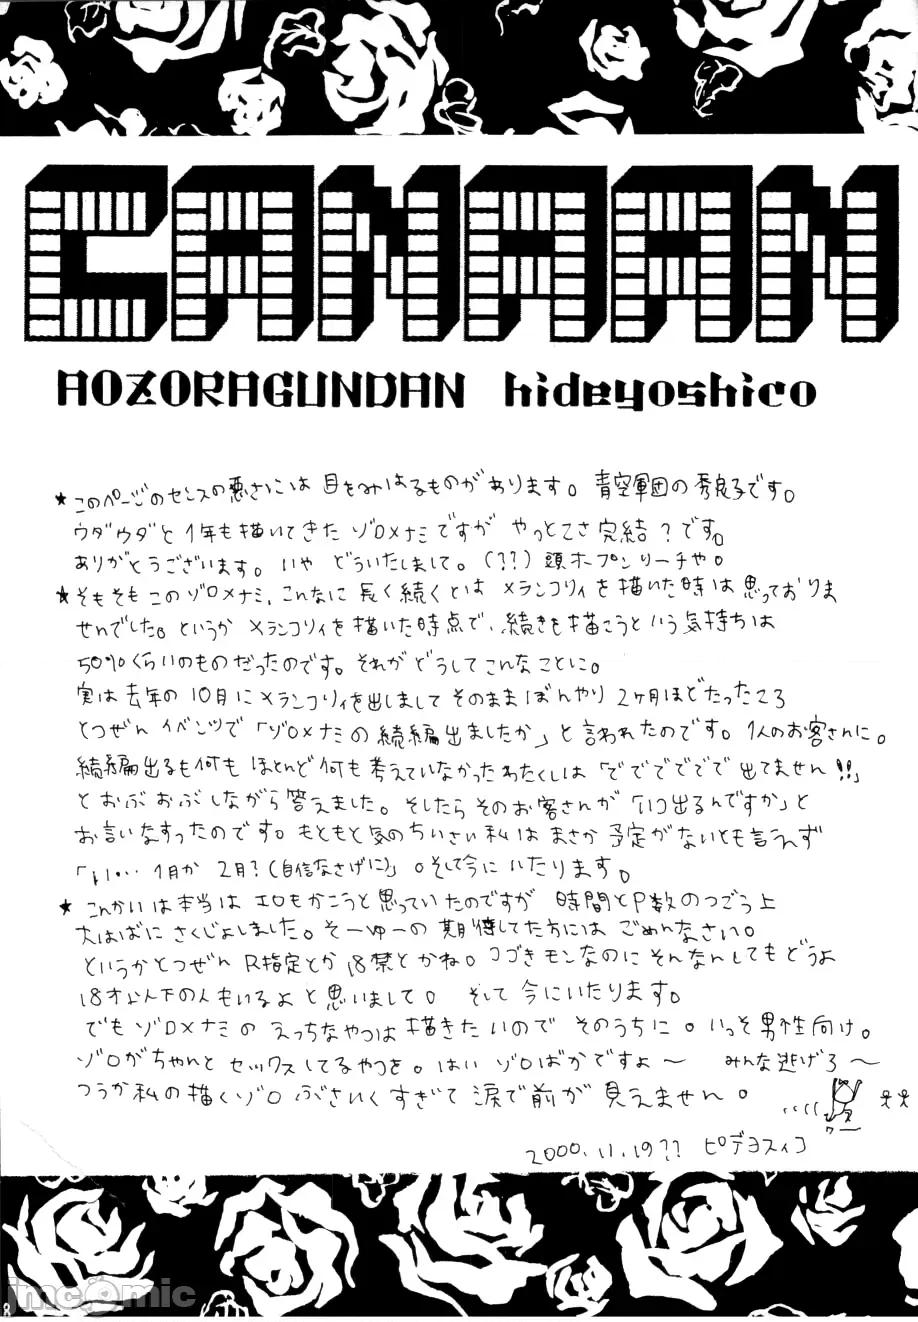 CANAAN
AOZORAGUNDAN hideyoshico
★このページのセンスの悪さには目をみはるものがあります。青空軍団の秀良子です。
ウダウダと1年も描いてきたゾロ×ナミですがやっとこさ完結?です。
ありがとうございます。いやどういたしまして。(??)頭ホープンリーチや。
★そもそもこのゾロ×ナミ、こんなに長く続くとはメランコリィを描いた時は思っておりま
せんでした。というかメランコリィを描いた時点で、続きを描こうという気持ちは
50%くらいのものだったのです。それがどうしてこんなことに。
実は去年の10月にメランコリィを出しましてそのままぼんやり2ヶ月ほどたったころ
とつぜんイベンツで「ゾロ×ナミの続編出ましたか」と言われたのです。1人のお客さんに。
続編出るも何もほとんど何も考えていなかったわたくしは「ででででで出てません!!」
とおぶおぶしながら答えました。そしたらそのお客さんが「いつ出るんですか」と
お言いなすったのです。もともと気のちいさい私はまさか予定がないとも言えず
「い…1月か2月?(自信なさげに)」。そして今にいたります。
★こんかいは本当はエロもかこうと思っていたのですが時間とP数のつごう上
大はばにさくじょしました。そーゆーの期待してた方にはごめんなさい。
というかとつぜんR指定とか18禁とかね。コゴきモンなのにそんなんしてもどうよ
18才以下の人もいるよと思いまして。そして今にいたります。
でもゾロ×ナミのえっちなやつは描きたいのでそのうちに。いっそ男性向け。
ゾロがちゃんとセックスしてるやつを。はいゾロばかですよ〜 みんな逃げろ〜
つうか私の描くゾロぶさいくすぎて涙で前が見えません。
2000.11.19?? ピデヨスィコ
jmcomic
8